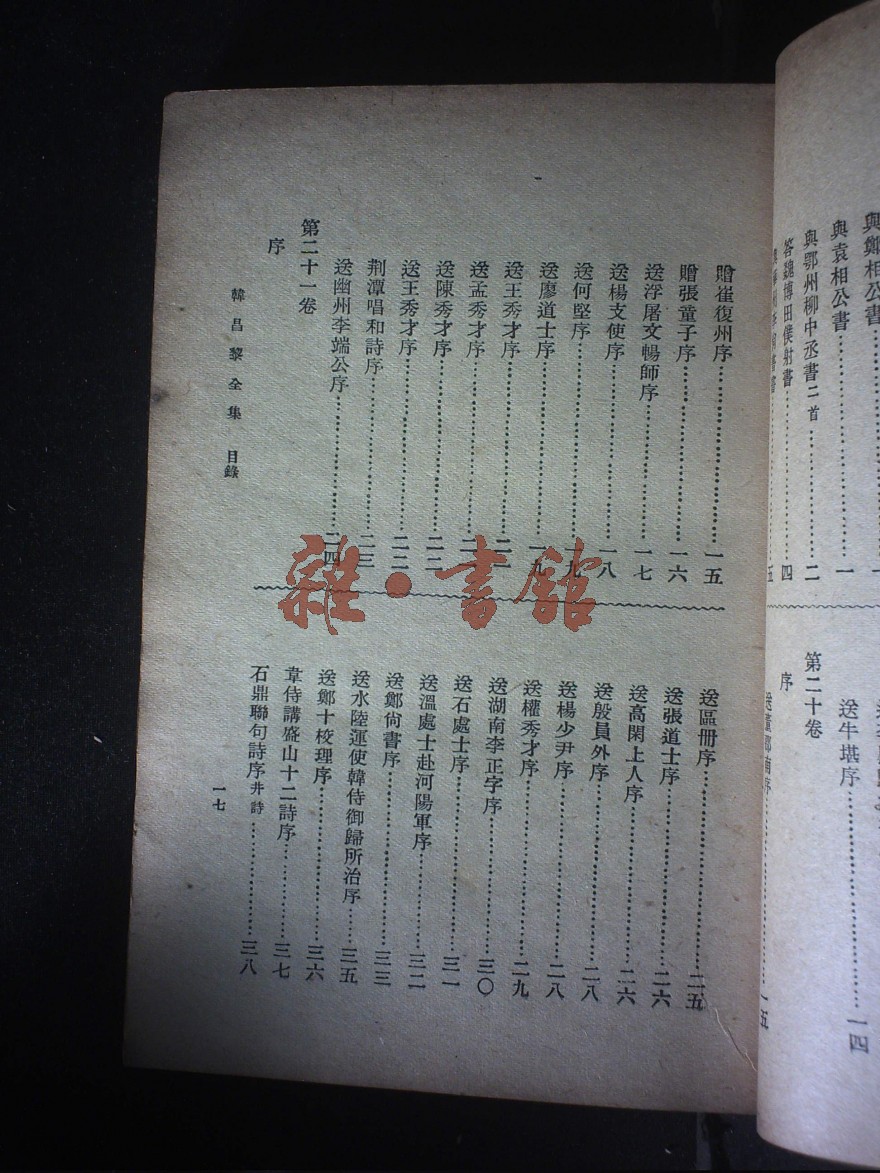 與鄭相公書……一
與袁相公書……一
與鄂州柳中丞書二首……二
答魏博田僕射書……四
送牛堪序……一四
第二十卷
序
送董邵南序……一五
贈崔復州序……一五
贈張童子序……一六
送浮屠文暢師序……一七
送楊支使序……一八
送何堅序……一九
送廖道士序……一九
送王秀才序……
送孟秀才序……
送陳秀才序……二二
送王秀才序……二二
荆潭唱和詩序……二三
送幽州李端公序……二四
第二十一卷
序
送區册序……二五
送張道士序……二六
送高閑上人序……二六
送殷員外序……二八
送楊少尹序……二八
送權秀才序……二九
送湖南李正字序……三〇
送石處士序……三一
送溫處士赴河陽軍序……三二
送鄭尙書序……三三
送水陸運使韓侍御歸所治序……三五
送鄭十校理序……三六
韋侍講盛山十二詩序……三七
石鼎聯句詩序并詩……三八
韓昌黎全集 目錄
一七
雜·書館